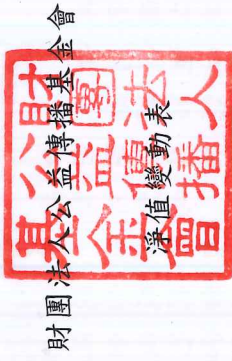 財團法人公益傳播基金會
淨值變動表
財團法人
公益傳播
基金會